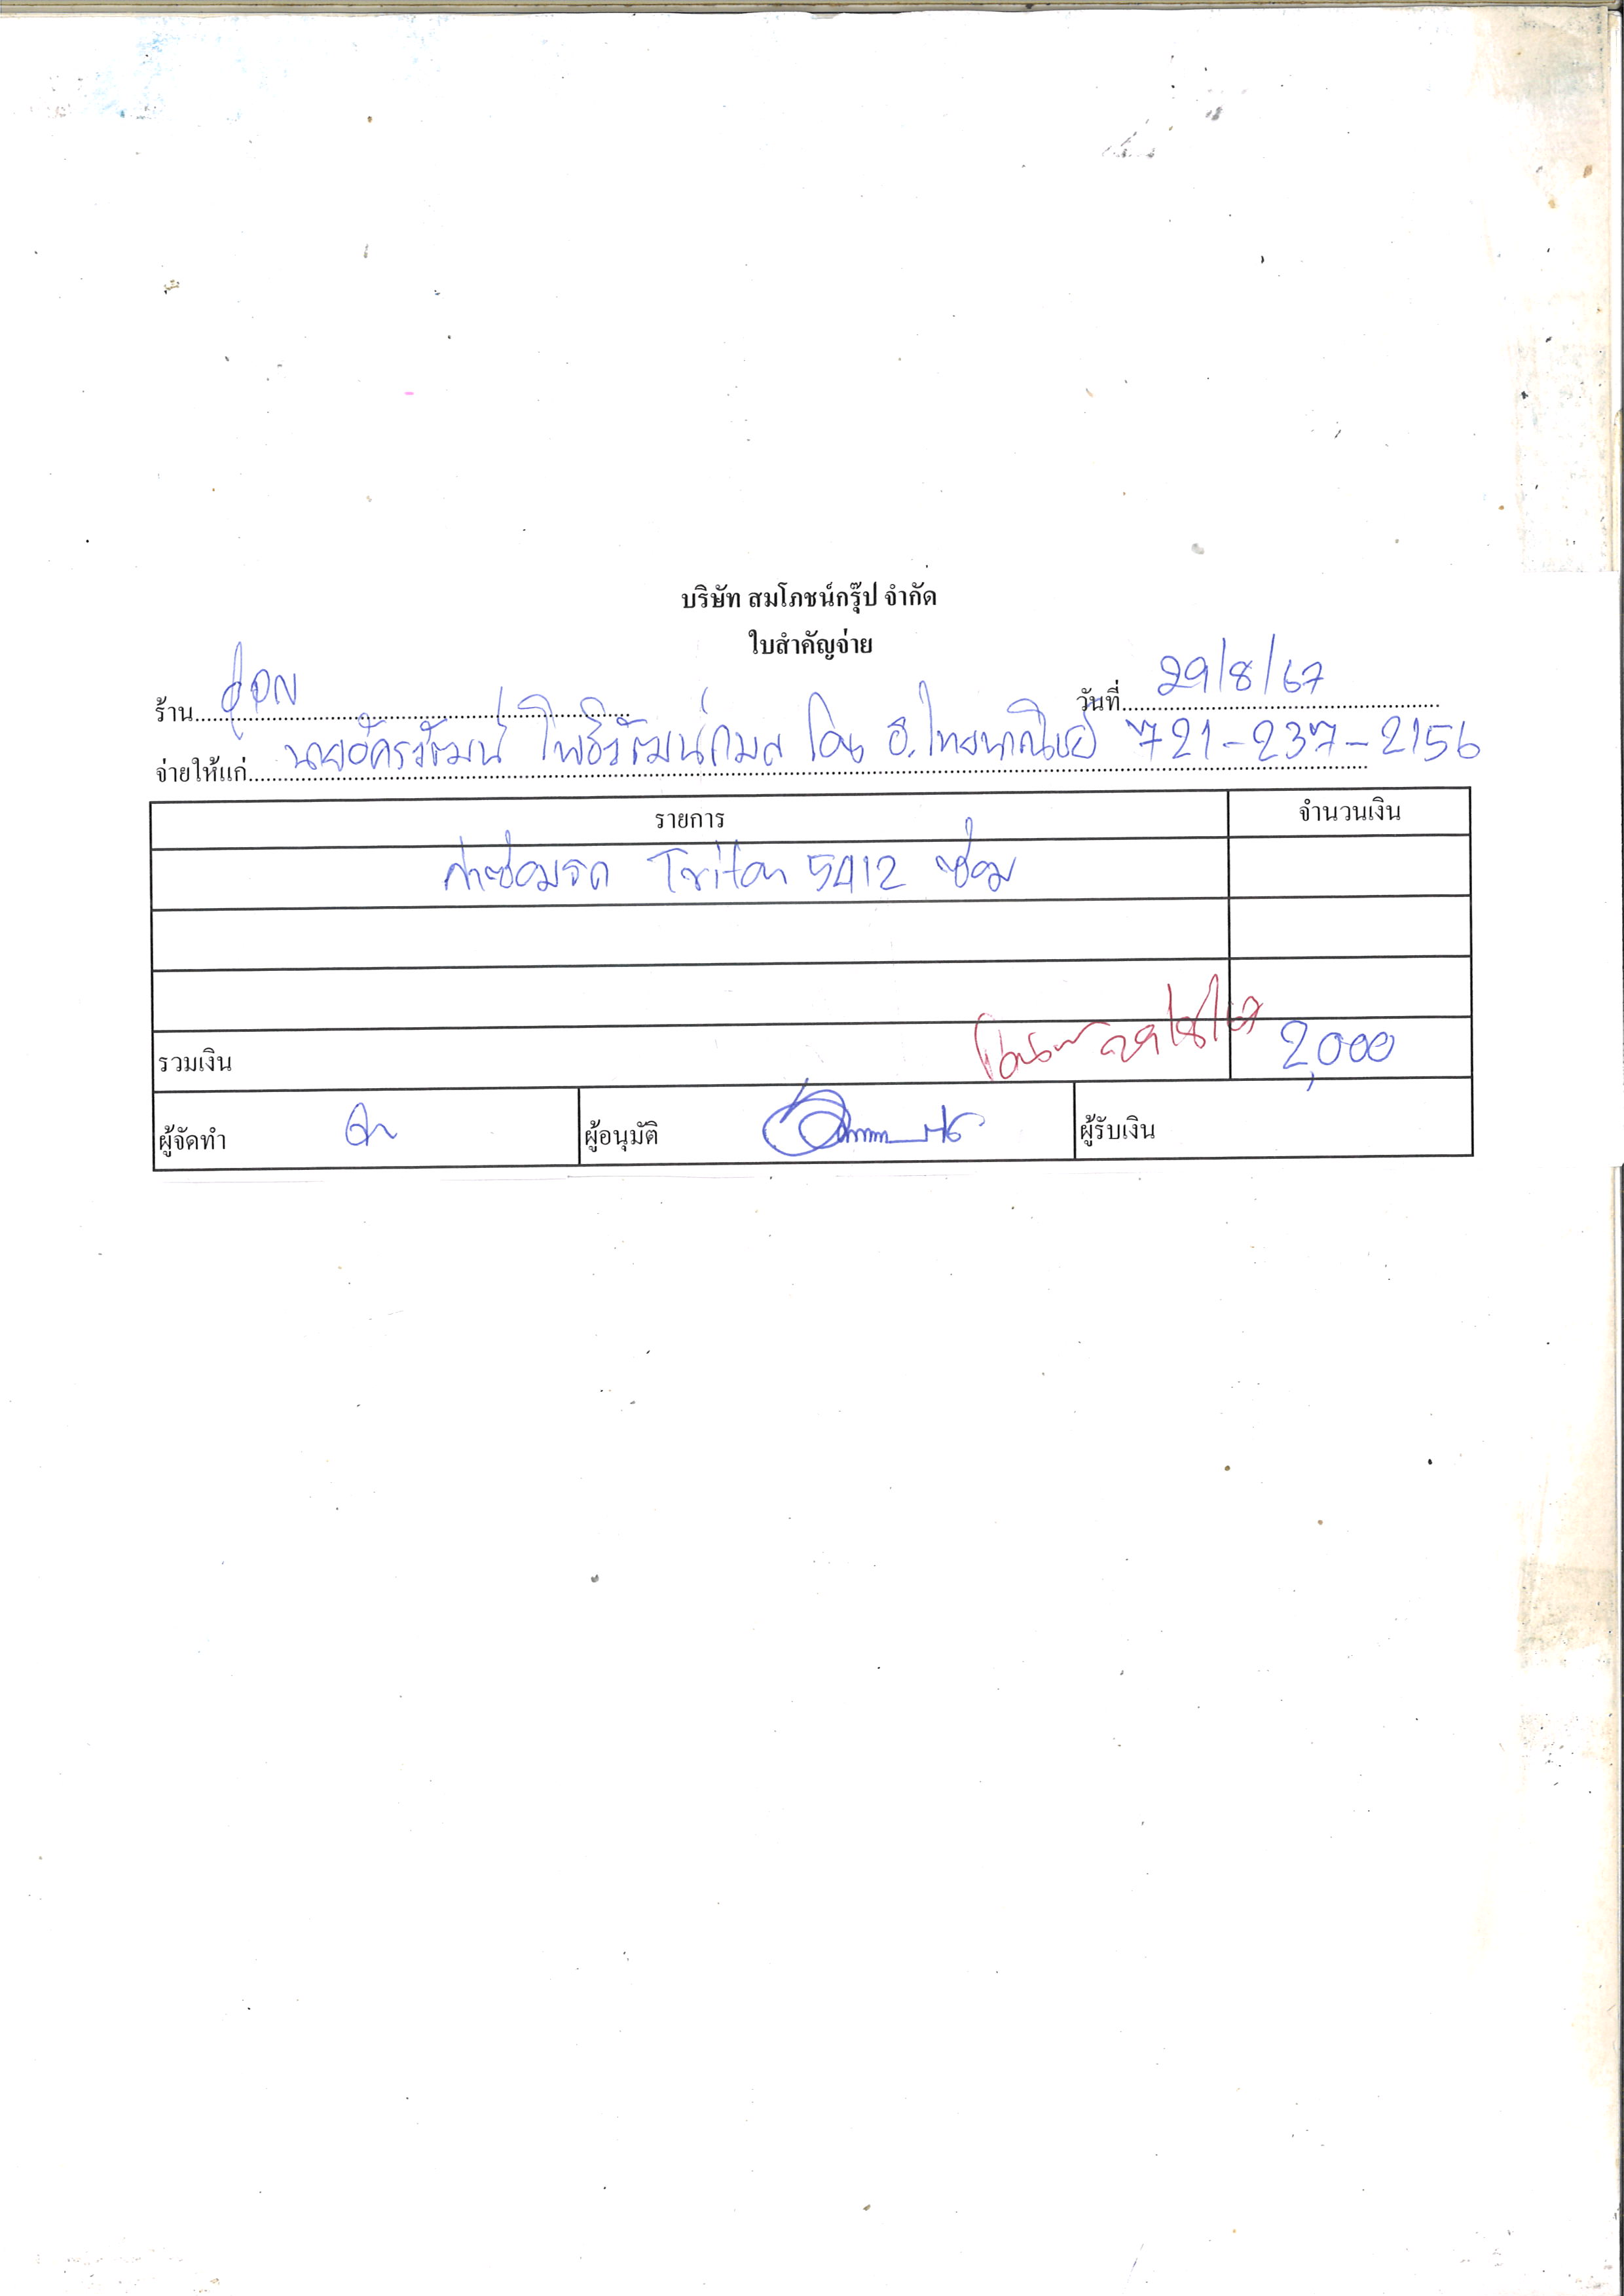 บริษัท สมโภชน์กรุ๊ป จำกัด
ใบสำคัญจ่าย
ร้าน
วันที่ 29/8/67
จ่ายให้แก่ นายอัครวัฒน์ โพธิวัฒน์กมล โอน ธ.ไทยพาณิชย์ 721-237-2156
รายการ จำนวนเงิน
ค่าซ่อมรถ Triton 5412 ซ่อม
29/8/67
รวมเงิน 2,000
ผู้จัดทำ ผู้อนุมัติ ผู้รับเงิน